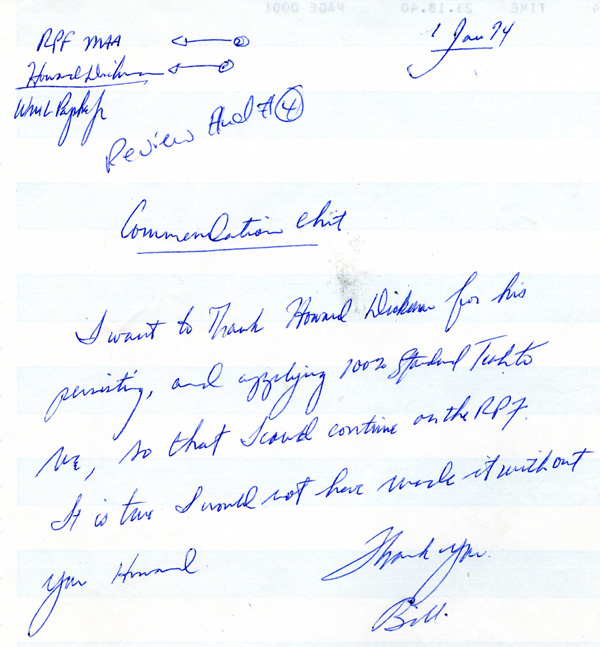 TIME 23.18.40 PAGE 0001
RPF MAA
1 Jan 94
Howard Dickman
Wm L
Review Aud #4
Commendation Chit
I want to Thank Howard Dickman for his
persisting, and applying 100% Standard Tech to
me, so that I could continue on the RPF.
It is true I would not have made it without
you Howard
Thank you.
Bill.